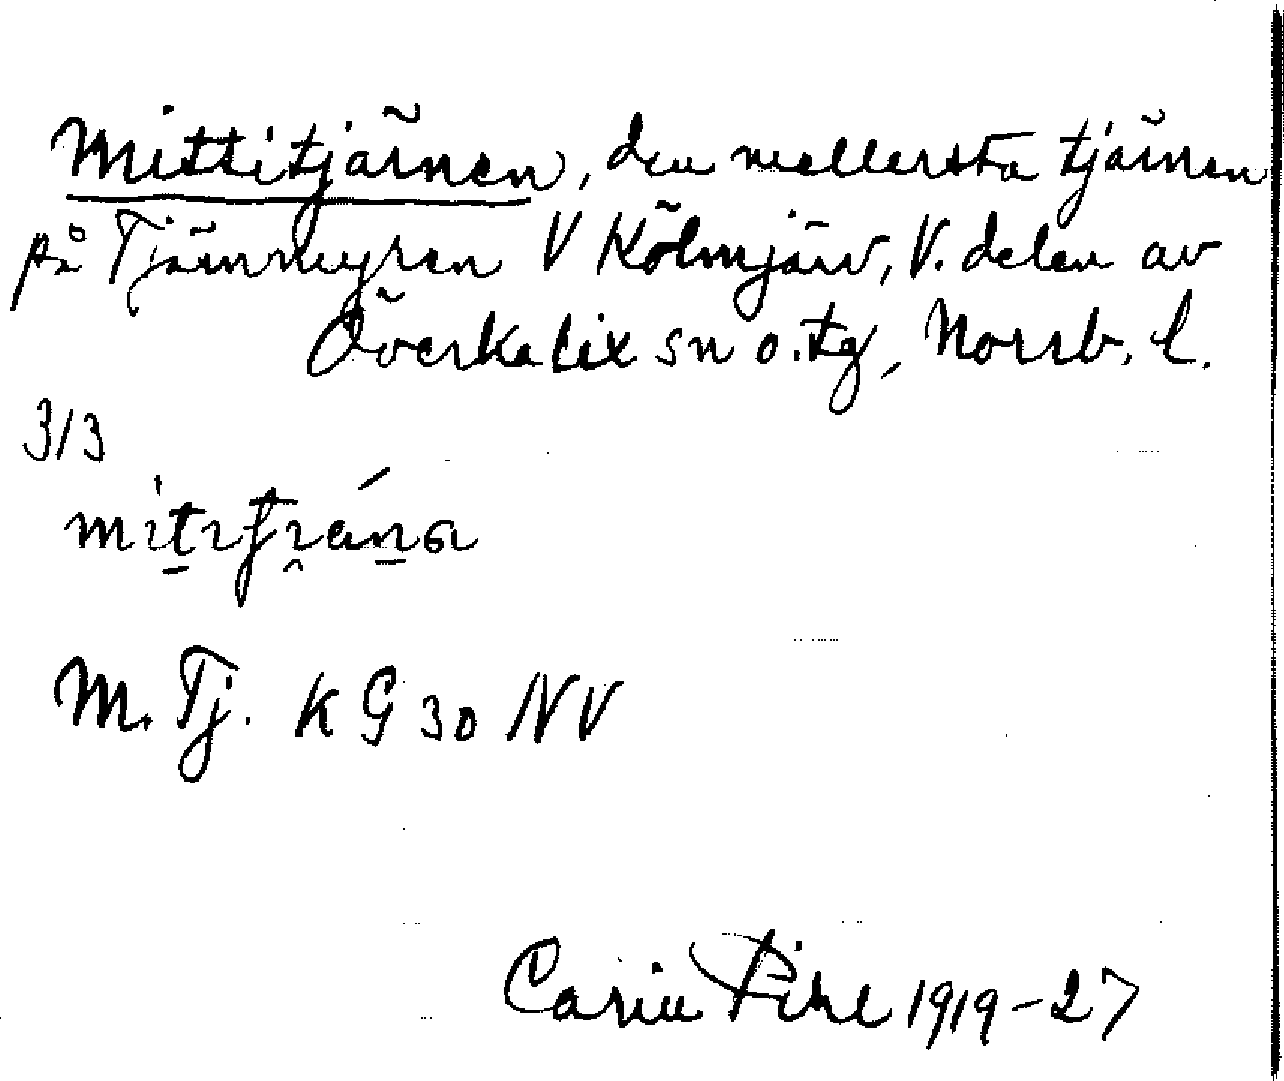 Mittitjärnen, den mellersta tjärnen
på Tjärnmyren V Kölmjärv, V. delen av
Överkalix sn o. tg, Norrb. l.
3/3
M. Tj. K G 30 NV
Carin Pihl 1919-27